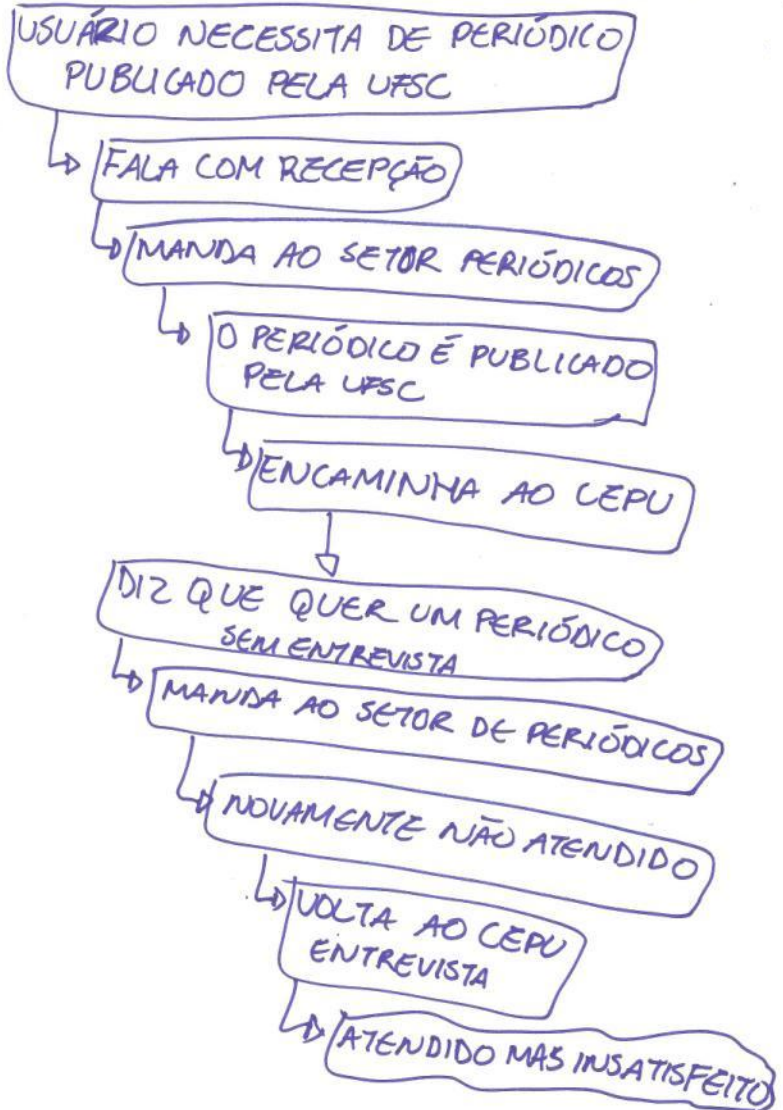 USUÁRIO NECESSITA DE PERIÓDICO
PUBLICADO PELA UFSC
FALA COM RECEPÇÃO
MANDA AO SETOR PERIÓDICOS
O PERIÓDICO É PUBLICADO
PELA UFSC
ENCAMINHA AO CEPU
DIZ QUE QUER UM PERIÓDICO
SEM ENTREVISTA
MANDA AO SETOR DE PERIÓDICOS
NOVAMENTE NÃO ATENDIDO
VOLTA AO CEPU
ENTREVISTA
ATENDIDO MAS INSATISFEITO